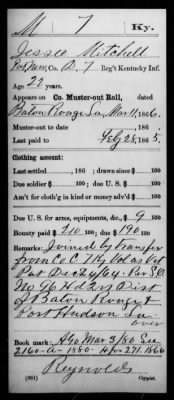 M 7 Ky.
Jessee Mitchell
Pvt, Co. D, 7 Reg't Kentucky Inf.
Age 22 years.
Appears on Co. Muster-out Roll, dated
Baton Rouge La, Mar 11, 1866.
Muster-out to date , 186 .
Last paid to Feb 28, 1865.
Clothing account:
Last settled , 186 ; drawn since $ 100
Due soldier $ 100; due U. S. $ 100
Am't for cloth'g in kind or money adv'd $ 100
Due U. S. for arms, equipments, &c., $ 9 100
Bounty paid $ 210 100; due $ 190 100
Remarks: Joined by transfer
from Co C. 7 Ky Vol as Vet
Dec 24/64. Per S.O.
No 96 Hdqrs Dist
of Baton Rouge &
Port Hudson La.
over
Book mark: AGO Mar 3/80 See
2160-A-1880. 1866
Reynolds
(361) Copyist.